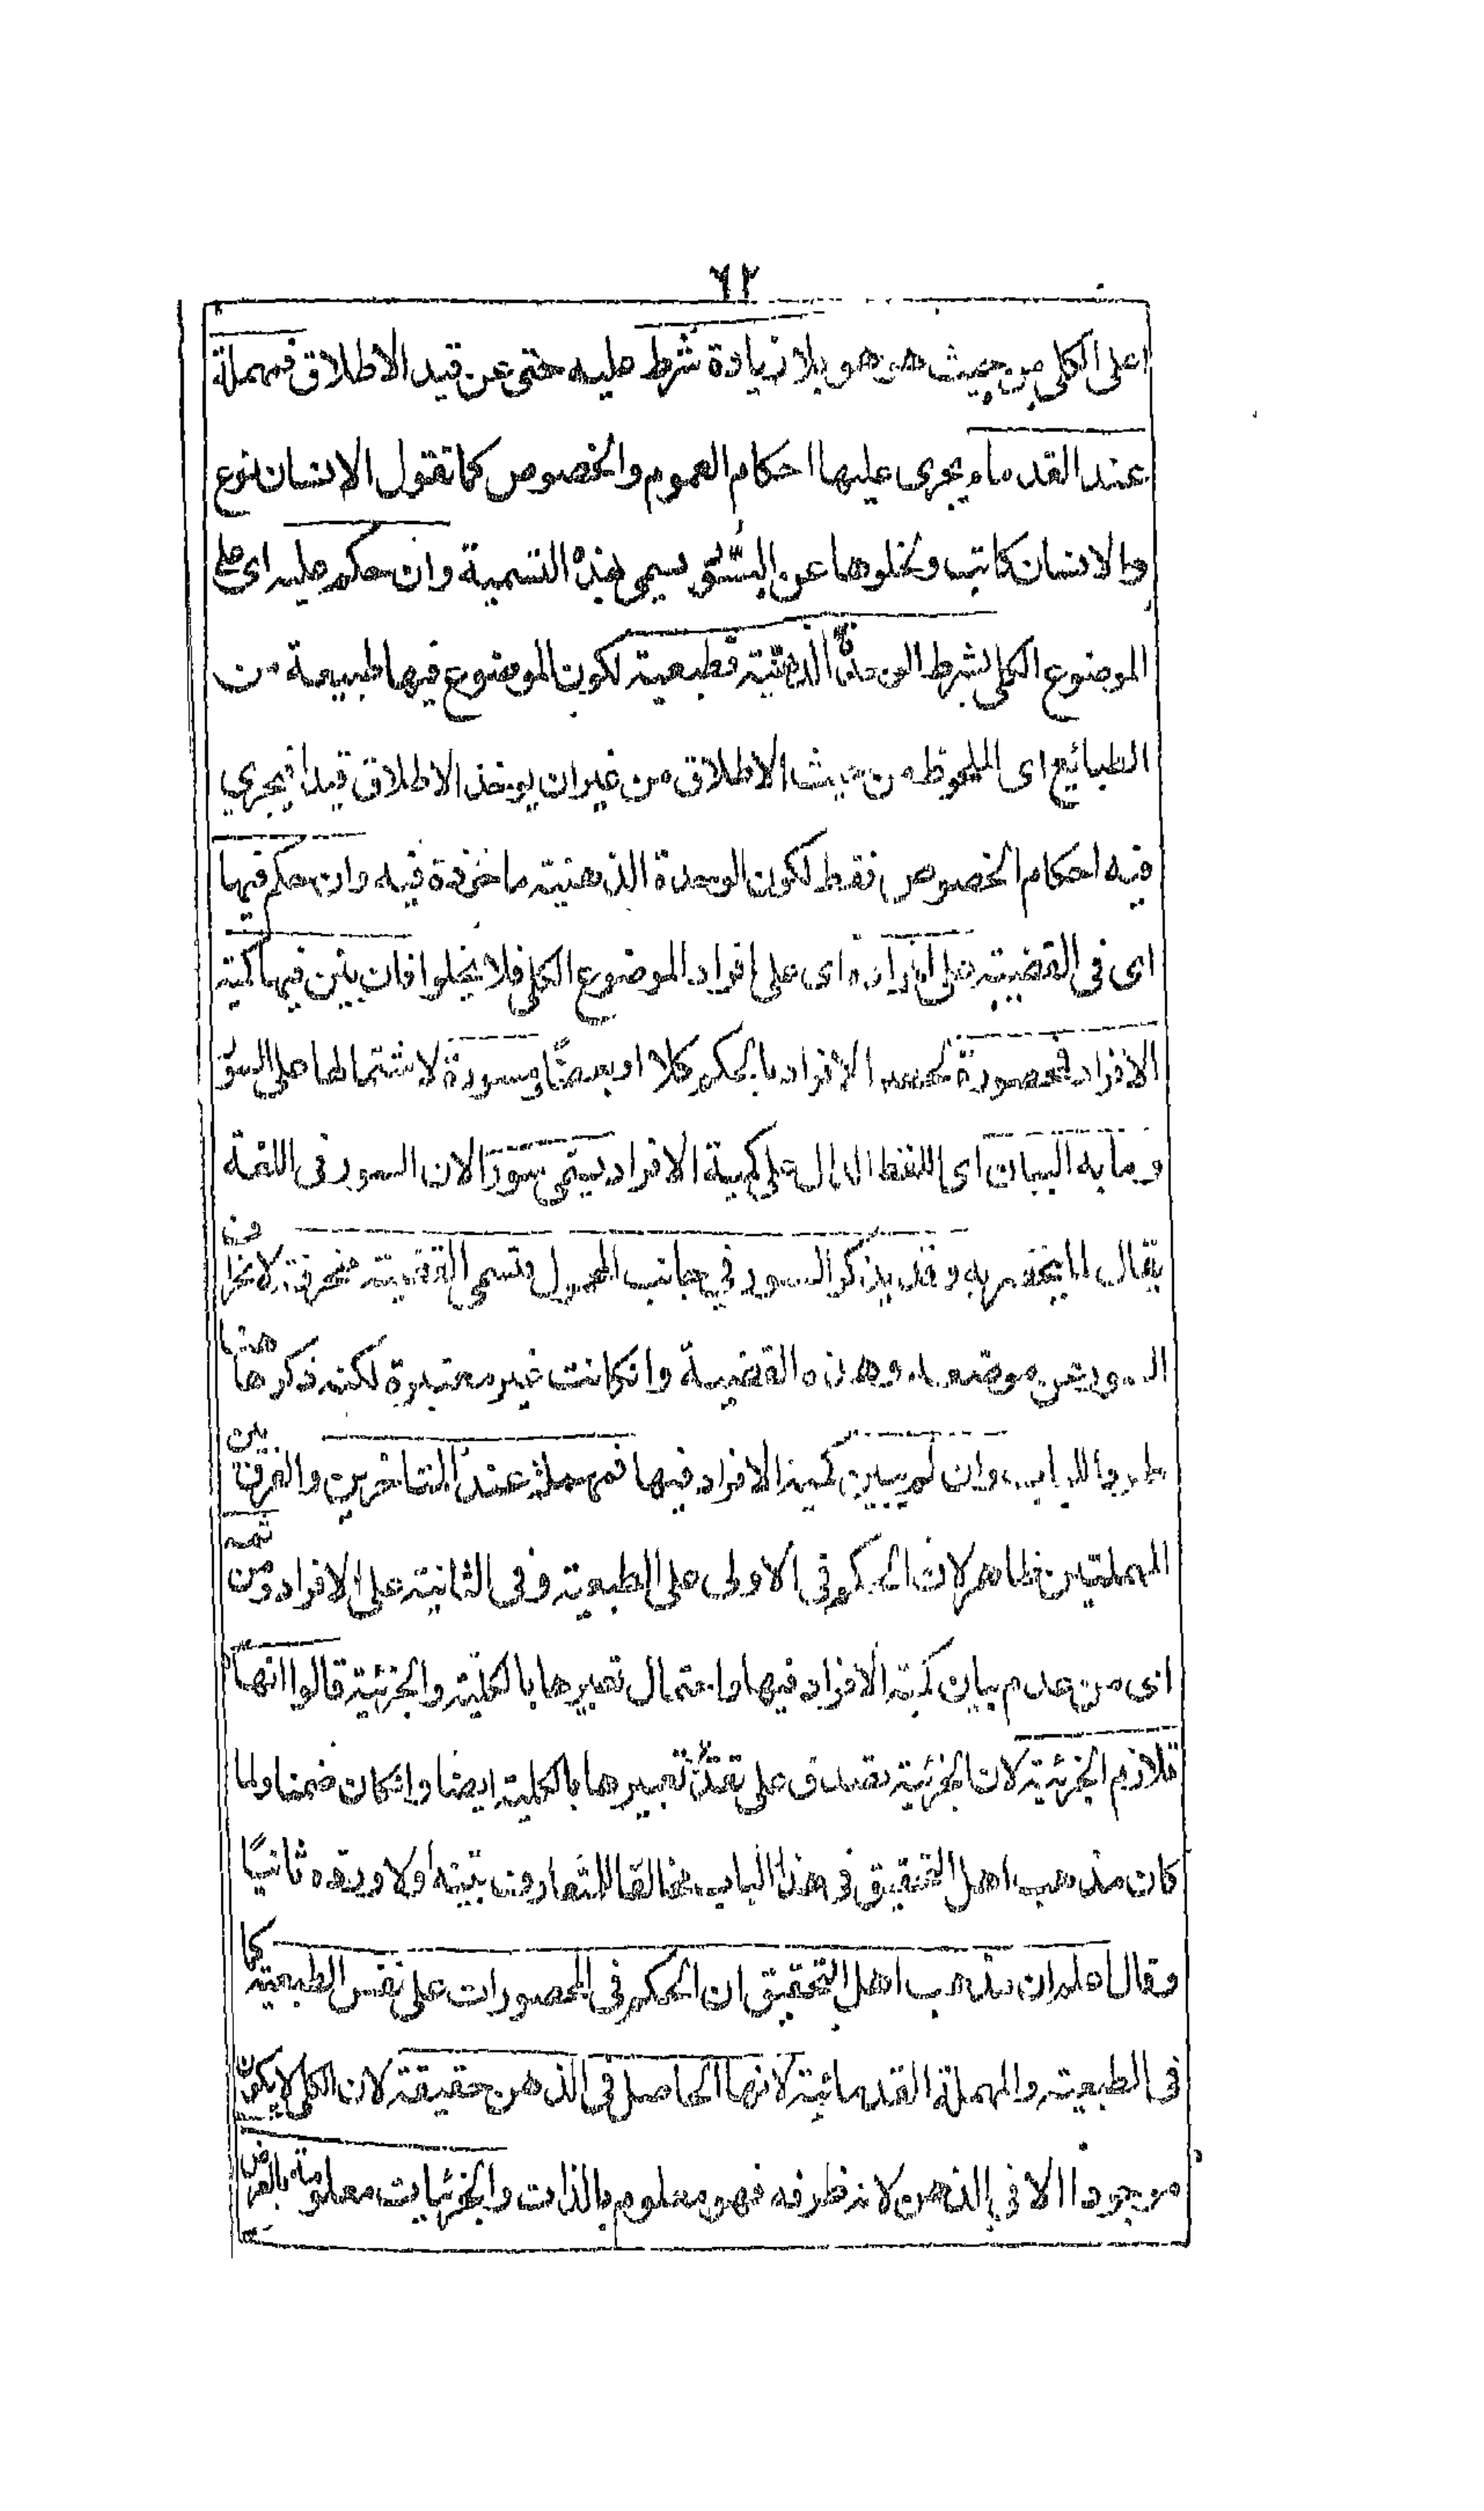 ٦٢
على الكلي من حيث هو هو بلا زيادة شرط عليه حتى عن قيد الاطلاق فمهملة
عند القدماء ويجرى عليها احكام العموم والخصوص كما تقول الانسان نوع
والانسان كاتب ولخلوها عن السور يسمى بهذه التسمية وان حكم عليه اى على
الموضوع الكلي بشرط الوحدة الذهنية فطبعية لكون الموضوع فيها طبيعة من
الطبائع اى الملحوظه من حيث الاطلاق من غير ان يوخذ الاطلاق قيدا فيجري
فيه احكام الخصوص فقط لكون الوحدة الذهنية ماخوذة فيه وان حكم فيها
اى فى القضية على افراده اى على افراد الموضوع الكلي فلا يخلوا فان بين فيها كمية
الافراد فمحصورة لحصر الافراد بالحكم كلا او بعضًا ومسورة لاشتمالها على السور
وما به البيان اى اللفظ الدال على كمية الافراد يسمى سورا لان السور فى اللغة
يقال لما ينحصر به وقد يذكر السور في جانب المحمول وتسمى القضية منحرفة لانحراف
السور عن موضعه وهذه القضية وانكانت غير معتبرة لكنه ذكرها هنا
طردا للباب وان لم يبين كمية الافراد فيها فمهملة عند المتاخرين والفرق بين
المهملتين ظاهر لان الحكم فى الاولى على الطبعية وفى الثانية على الافراد ومن ثمه
اى من عدم بيان كمية الافراد فيها واحتمال تعبيرها بالكلية والجزئية قالوا انها
تلازم الجزئية لان الجزئية تصدق على تقدير تعبيرها بالكلية ايضا وانكان ضمنا ولما
كان مذهب اهل التحقيق فى هذا الباب مخالفا للمتعارف بينه اولا وردوه ثانيًا
وقال اعلم ان مذهب اهل التحقيق ان الحكم فى المحصورات على نفس الطبعية كما
فى الطبعية والمهملة القدمائية لانها الحاصل فى الذهن حقيقة لان الكلي لا يكون
موجودا الا في الذهن لانه ظرفه فهو معلوم بالذات والجزئيات معلومة بالعرض